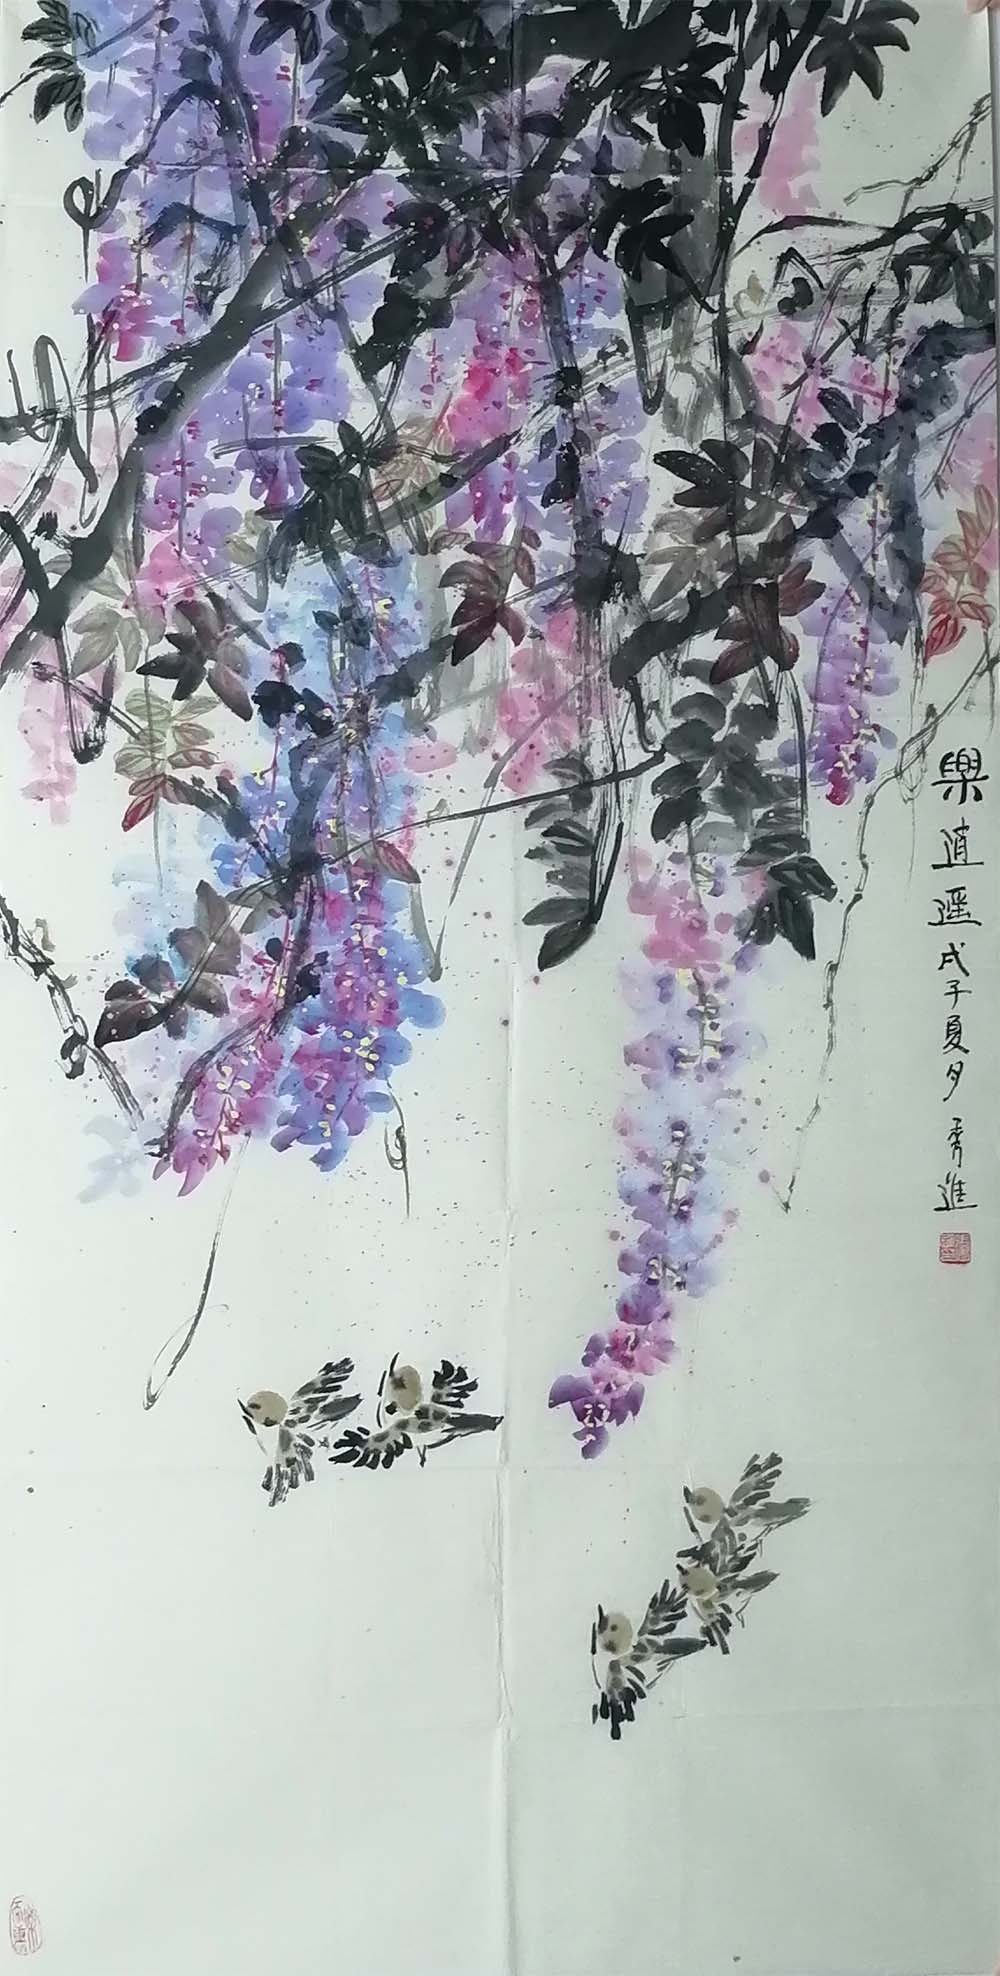 樂逍遥戊子夏月 秀進